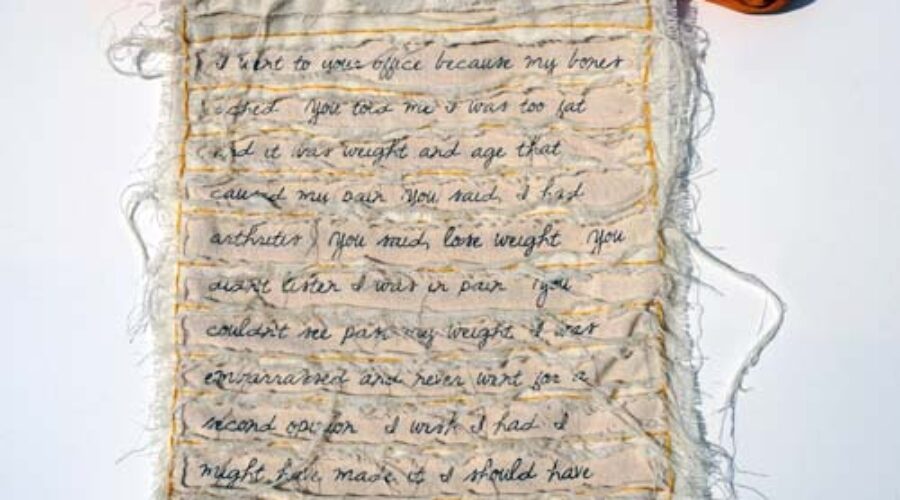 I went to your office because my bones
ached You told me I was too fat
and it was weight and age that
caused my pain You said, I had
arthritis You said, lose weight You
didnt listen I was in pain You
couldn't see past my weight I was
embarrassed and never went for a
second opinion I wish I had I
might have made it I should have